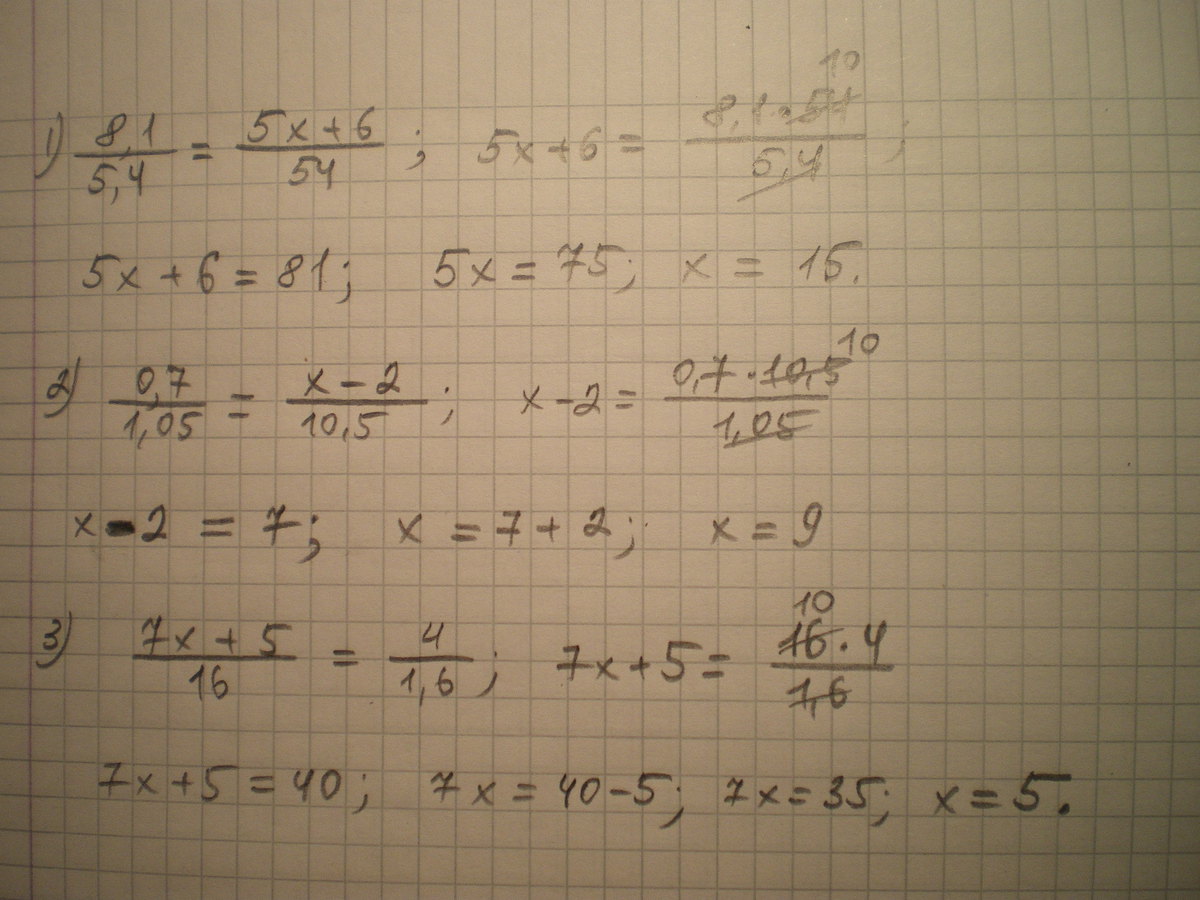 1) 8,1/5,4 = (5x+6)/54 ; 5x+6 = (8,1·54)/5,4 ; 10
5x+6=81; 5x=75; x = 15.
2) 0,7/1,05 = (x-2)/10,5 ; x-2= (0,7·10,5)/1,05 10
x-2 = 7; x = 7+2; x = 9
3) (7x+5)/16 = 4/1,6 ; 7x+5= (16·4)/1,6 10
7x+5=40; 7x=40-5; 7x=35; x=5.